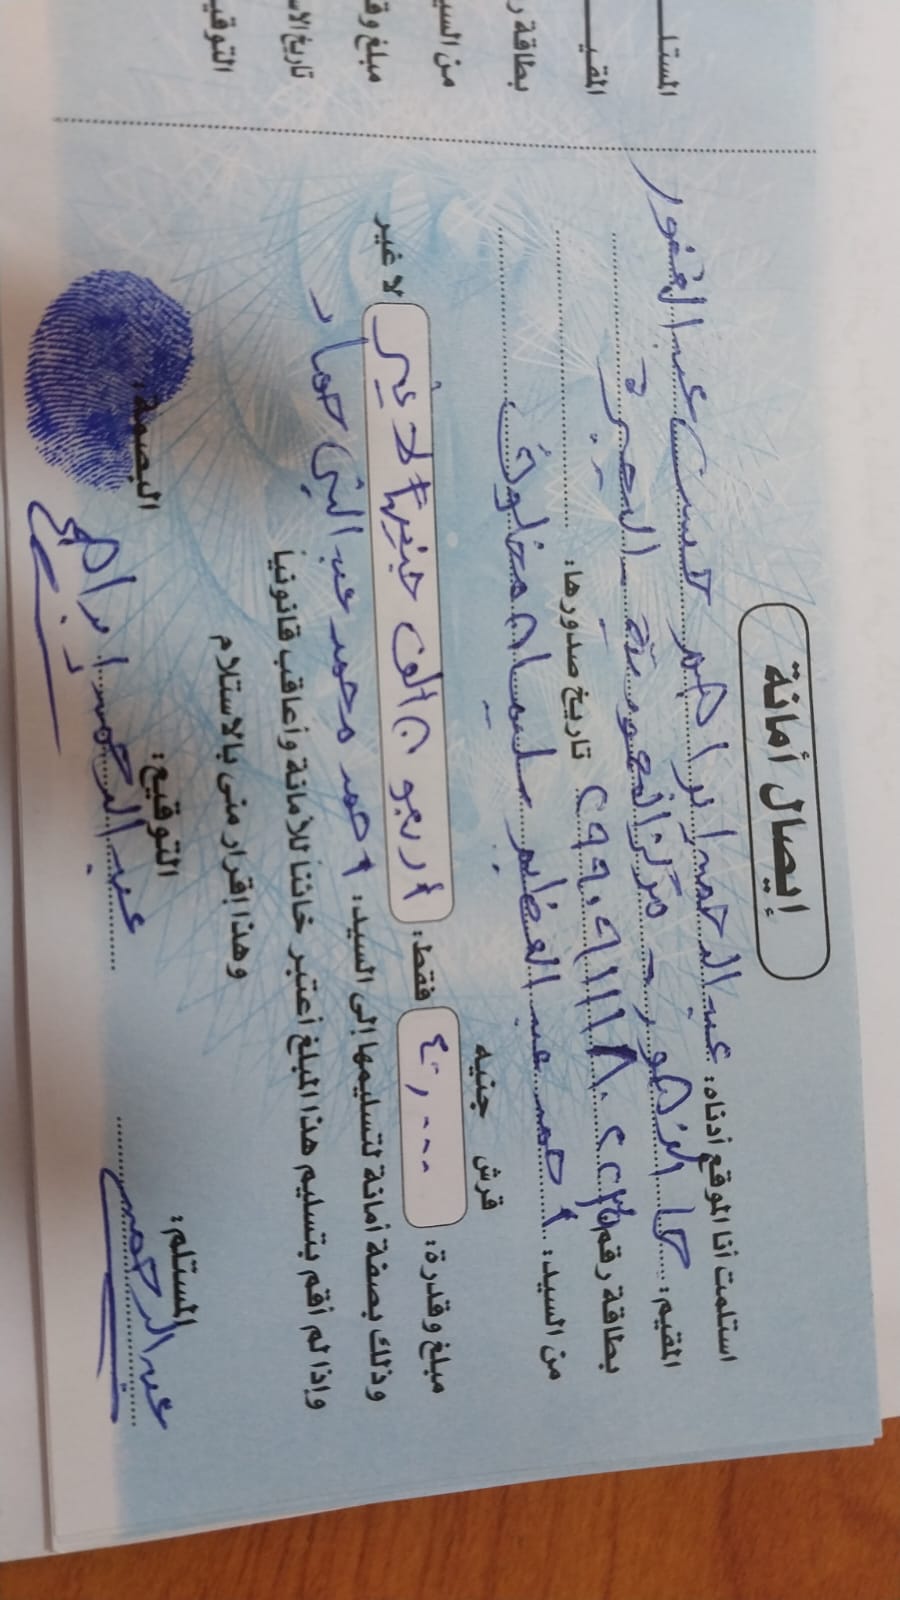 إيصال أمانة
استلمت أنا الموقع أدناه: عبد الرحمن إبراهيم حسن عبد الغفور
المقيم:
بطاقة رقم تاريخ صدورها:
من السيد: أحمد عبد العظيم سليمان مخلوف
قرش جنيه
مبلغ وقدرة: ٤٠,٠٠٠ فقط: أربعون ألف جنيها لا غير لا غير
وذلك بصفة أمانة لتسليمها إلى السيد: أحمد محمد عبد النبي حماد
وإذا لم أقم بتسليم هذا المبلغ أعتبر خائنا للأمانة وأعاقب قانونيا
وهذا إقرار منى بالاستلام
المستلم: التوقيع: البصمة:
عبد الرحمن عبد الرحمن إبراهيم
المستلـ
المقيـ
بطاقة ر
من السيـ
مبلغ وقـ
تاريخ الاسـ
التوقيـ